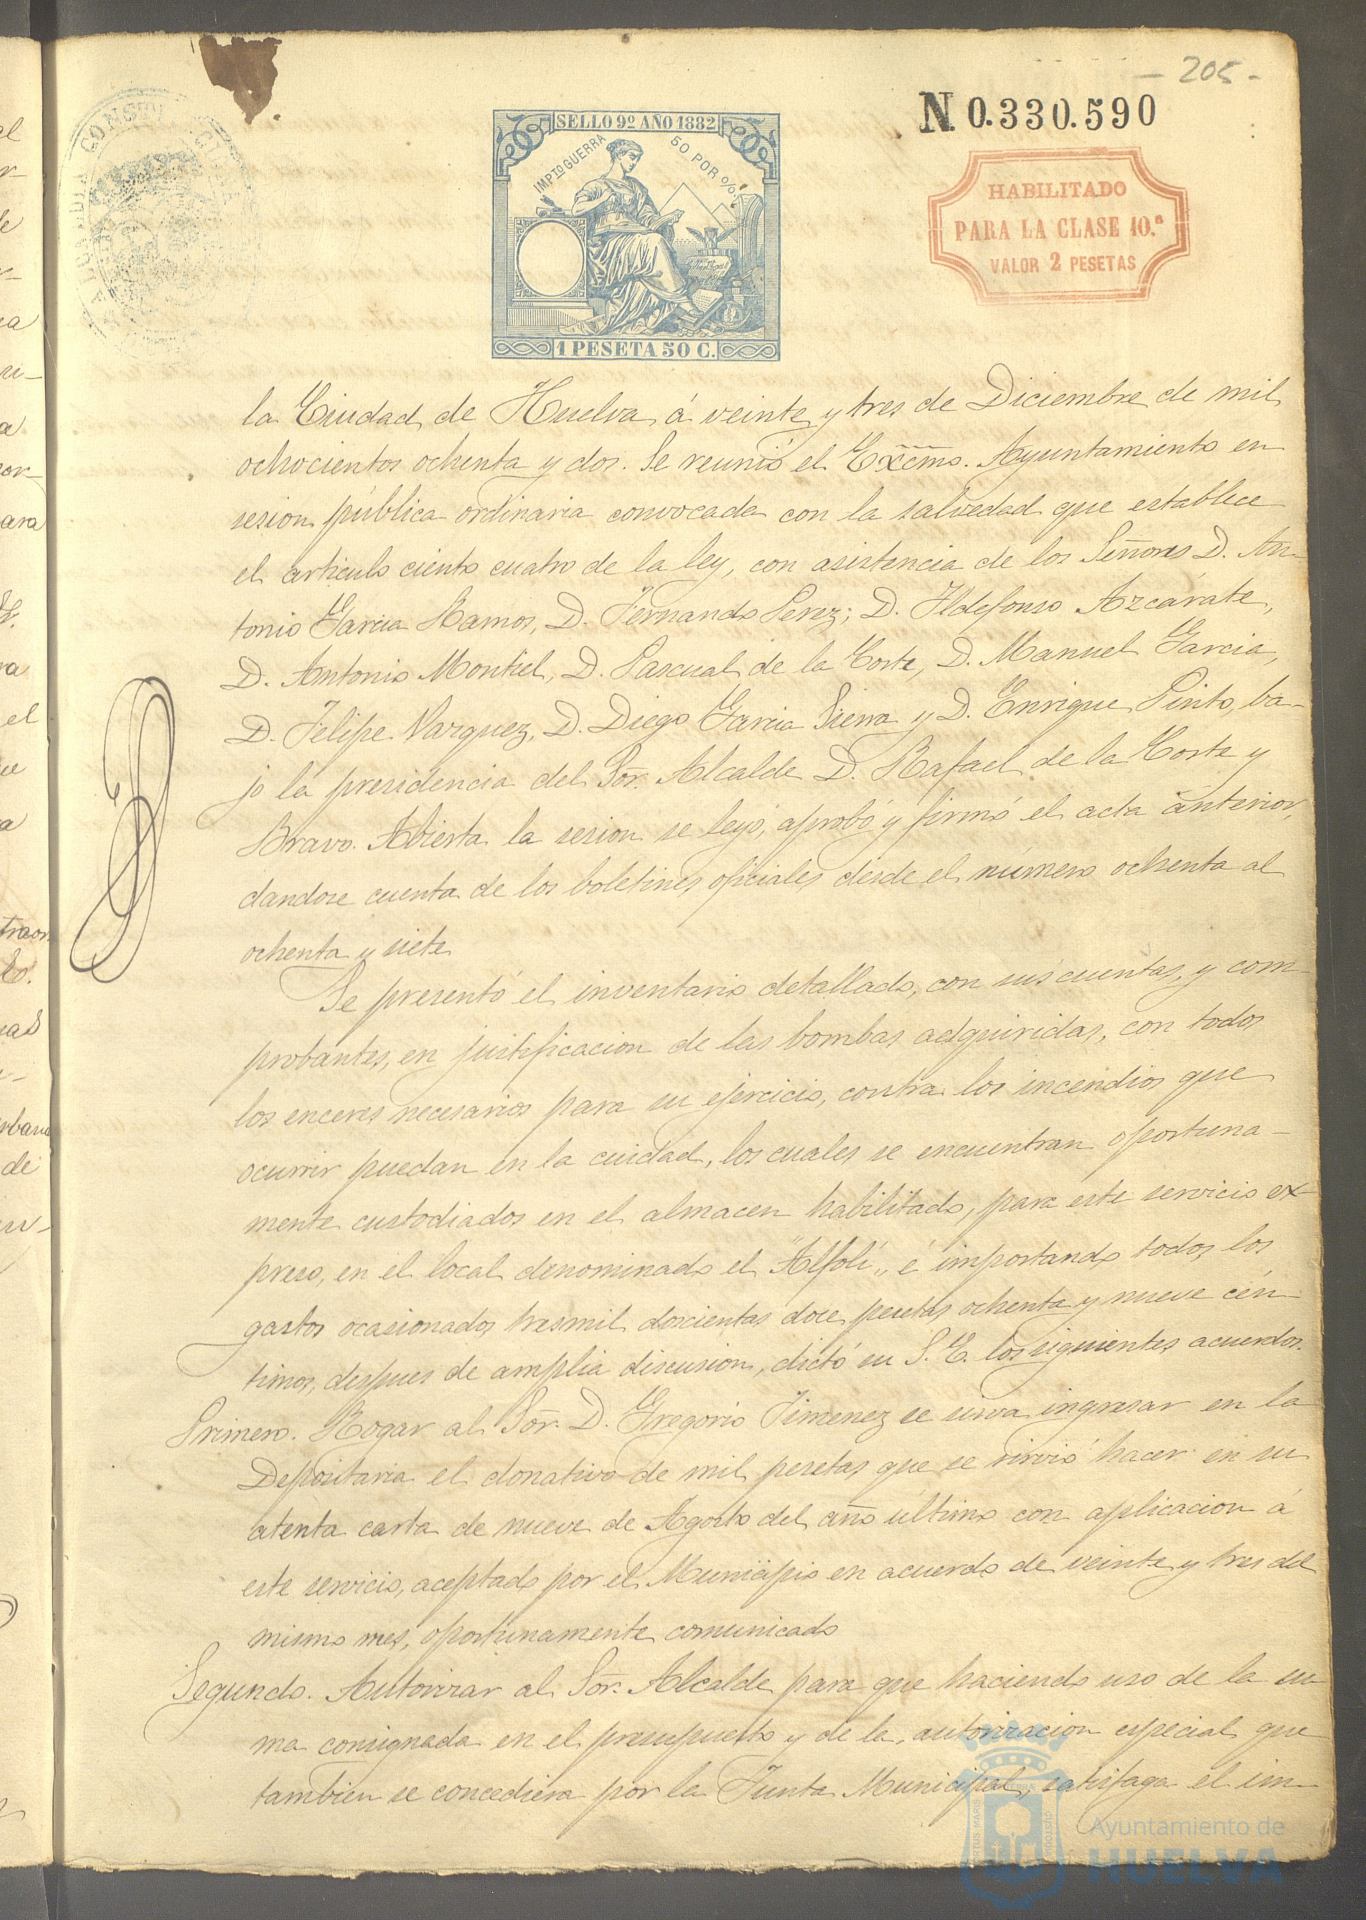 - 205 -
N. 0.330.590
SELLO 9º AÑO 1882
IMPTO GUERRA 50 POR %
1 PESETA 50 C.
HABILITADO
PARA LA CLASE 10.ª
VALOR 2 PESETAS
la Ciudad de Huelva á veinte y tres de Diciembre de mil
ochocientos ochenta y dos. Se reunió el Excmo. Ayuntamiento en
sesion pública ordinaria convocada con la salvedad que establece
el articulo ciento cuatro de la ley, con asistencia de los Señores D. An-
tonio Garcia Ramos, D. Fernando Perez; D. Ildefonso Azcárate,
D. Antonio Montiel, D. Pascual de la Corte, D. Manuel Garcia,
D. Felipe Vazquez, D. Diego Garcia Sierra y D. Enrique Pinto, ba-
jo la presidencia del Sor. Alcalde D. Rafael de la Corte y
Bravo. Abierta la sesion se leyó, aprobó y firmó el acta anterior,
dandose cuenta de los boletines oficiales desde el número ochenta al
ochenta y siete
Se presentó el inventario detallado, con sus cuentas, y com-
probantes, en justificacion de las bombas adquiridas, con todos
los enceres necesarios para su ejercicio, contra los incendios que
ocurrir puedan en la cuidad, los cuales se encuentran oportuna-
mente custodiados en el almacen habilitado, para este servicio ex-
preso, en el local denominado el "Alfolí„ é importando todos los
gastos ocasionados tresmil doscientas doce pesetas ochenta y nueve cén-
timos, despues de amplia discusion, dictó su S. E. los siguientes acuerdos.
Primero. Rogar al Sor. D. Gregorio Jimenez se sirva ingresar en la
Depositaria el donativo de mil pesetas que se sirvió hacer en su
atenta carta de nueve de Agosto del año último con aplicacion á
este servicio, aceptado por el Municipio en acuerdo de veinte y tres del
mismo mes, oportunamente comunicado
Segundo. Autorizar al Sor. Alcalde para que haciendo uso de la su
ma consignada en el presupuesto y de la autorizacion especial que
tambien se concediera por la Junta Municipal, satisfaga el im-
Ayuntamiento de
HUELVA